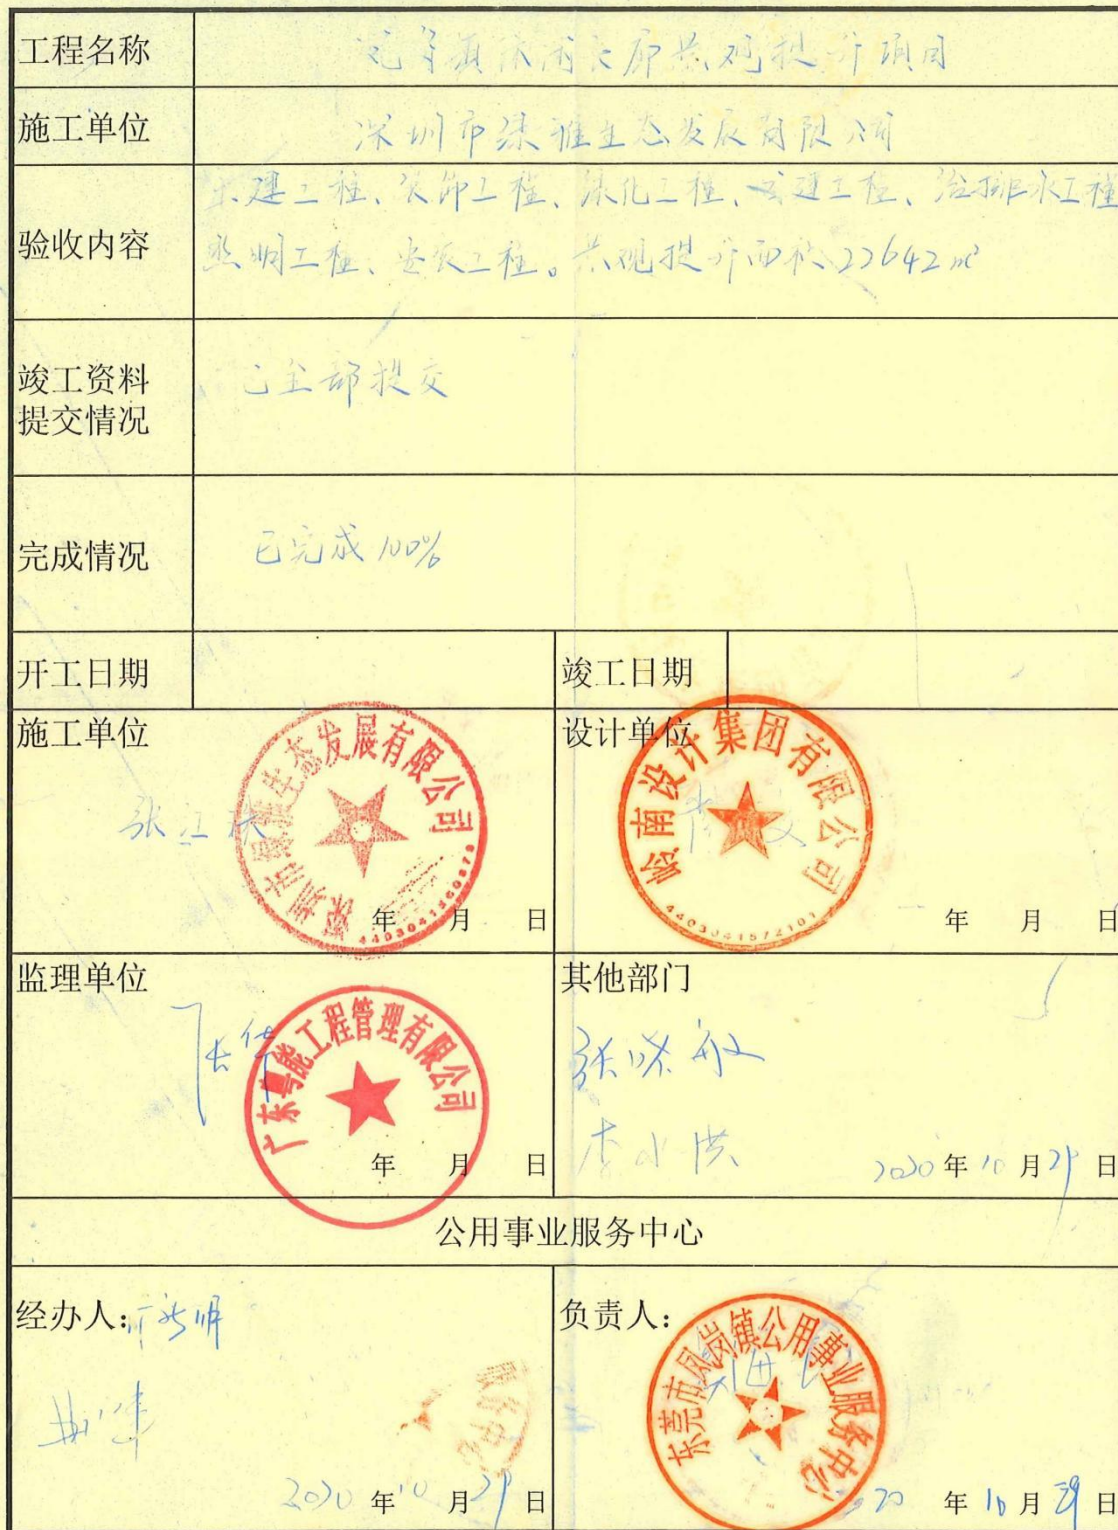 工程名称
提升项目
施工单位
深圳市绿雅生态发展有限公司
验收内容
土建工程、装饰工程、绿化工程、园建工程、给排水工程
照明工程、安装工程。景观提升面积22642㎡
竣工资料
提交情况
已全部提交
完成情况
已完成100%
开工日期
竣工日期
施工单位
深圳市绿雅生态发展有限公司
年 月 日
设计单位
岭南设计集团有限公司
44030041572101
年 月 日
监理单位
广东粤能工程管理有限公司
年 月 日
其他部门
李小洪
2020年10月29日
公用事业服务中心
经办人:
服务中心
2020年10月29日
负责人:
东莞市凤岗镇公用事业服务中心
20年10月29日